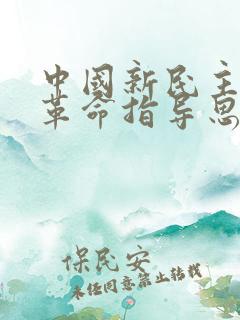 中國新民主
革命指导思
保民安
未经同意禁止转载